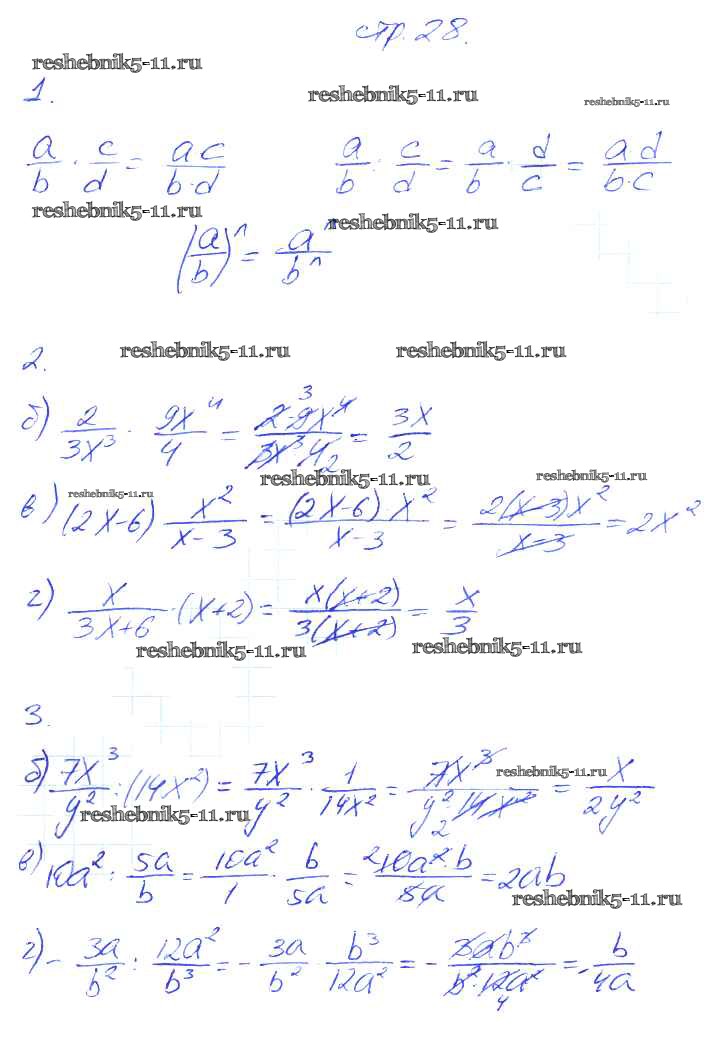 стр. 28.
reshebnik5-11.ru
1.
reshebnik5-11.ru
reshebnik5-11.ru
a/b · c/d = ac/b·d   a/b : c/d = a/b · d/c = ad/b·c
reshebnik5-11.ru
reshebnik5-11.ru
(a/b)^n = a^n/b^n
2.
reshebnik5-11.ru
reshebnik5-11.ru
б) 2/3x³ · 9x⁴/4 = 2·9³x⁴/3x³·4₂ = 3x/2
reshebnik5-11.ru
reshebnik5-11.ru
reshebnik5-11.ru
в) (2x-6) x²/x-3 = (2x-6)·x²/x-3 = 2(x-3)x²/x-3 = 2x²
г) x/3x+6 · (x+2) = x(x+2)/3(x+2) = x/3
reshebnik5-11.ru
reshebnik5-11.ru
3.
б) 7x³/y² : (14x²) = 7x³/y² · 1/14x² = 7x³/y²·₂14x² = x/2y²
reshebnik5-11.ru
reshebnik5-11.ru
в) 10a² : 5a/b = 10a²/1 · b/5a = ²10a²·b/5a = 2ab
reshebnik5-11.ru
г) - 3a/b² : 12a²/b³ = - 3a/b² · b³/12a² = - 3ab³/b²·12₄a² = - b/4a